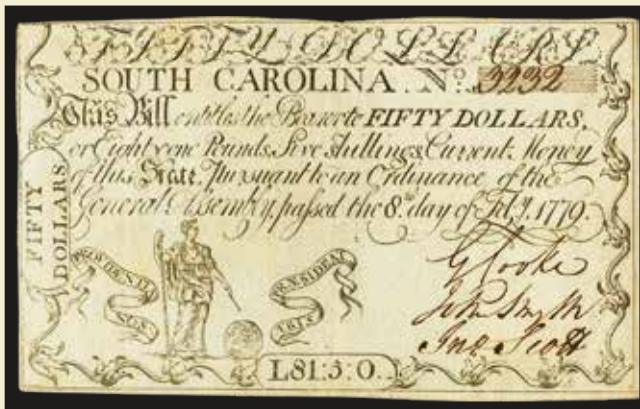 FIFTY DOLLARS
SOUTH CAROLINA. No. 3232
This Bill entitles the Bearer to FIFTY DOLLARS,
or Eighty one Pounds, Five shillings Current Money
of this State. Pursuant to an Ordinance of the
General Assembly, passed the 8.th day of Feb.y 1779.
FIFTY
DOLLARS
PROVIDENTIA
NOS
PRÆSIDEAT
G Cooke
John Smyth
Jno. Scott
L81:5:0.